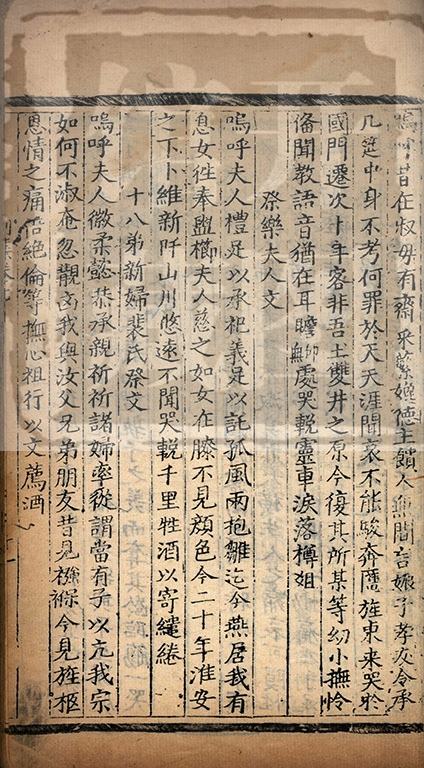 嗚呼昔在叔母有齋采蘩孌德主饋人無間言嫁子孝友令承
几筵中身不考何罪於天天涯聞哀不能駿奔靈旌東來哭於
國門遷次十年客非吾土雙井之原今復其所某等幼小撫怜
備聞教語音猶在耳瞻無處哭輓靈車淚落樽俎
祭樂夫人文
嗚呼夫人禮足以承祀義足以託孤風雨抱雛迄今燕居我有
息女往奉盥櫛夫人慈之如女在膝不見顏色今二十年淮安
之下卜維新阡山川悠遠不聞哭輓千里牲酒以寄繾綣
十八弟新婦裴氏祭文
嗚呼夫人徽柔懿恭承親祈祈諸婦率從謂當有子以亢我宗
如何不淑奄忽觀凶我與汝父兄弟朋友昔見襁褓今見旌柩
恩情之痛悟絕倫等撫心徂行以文薦酒